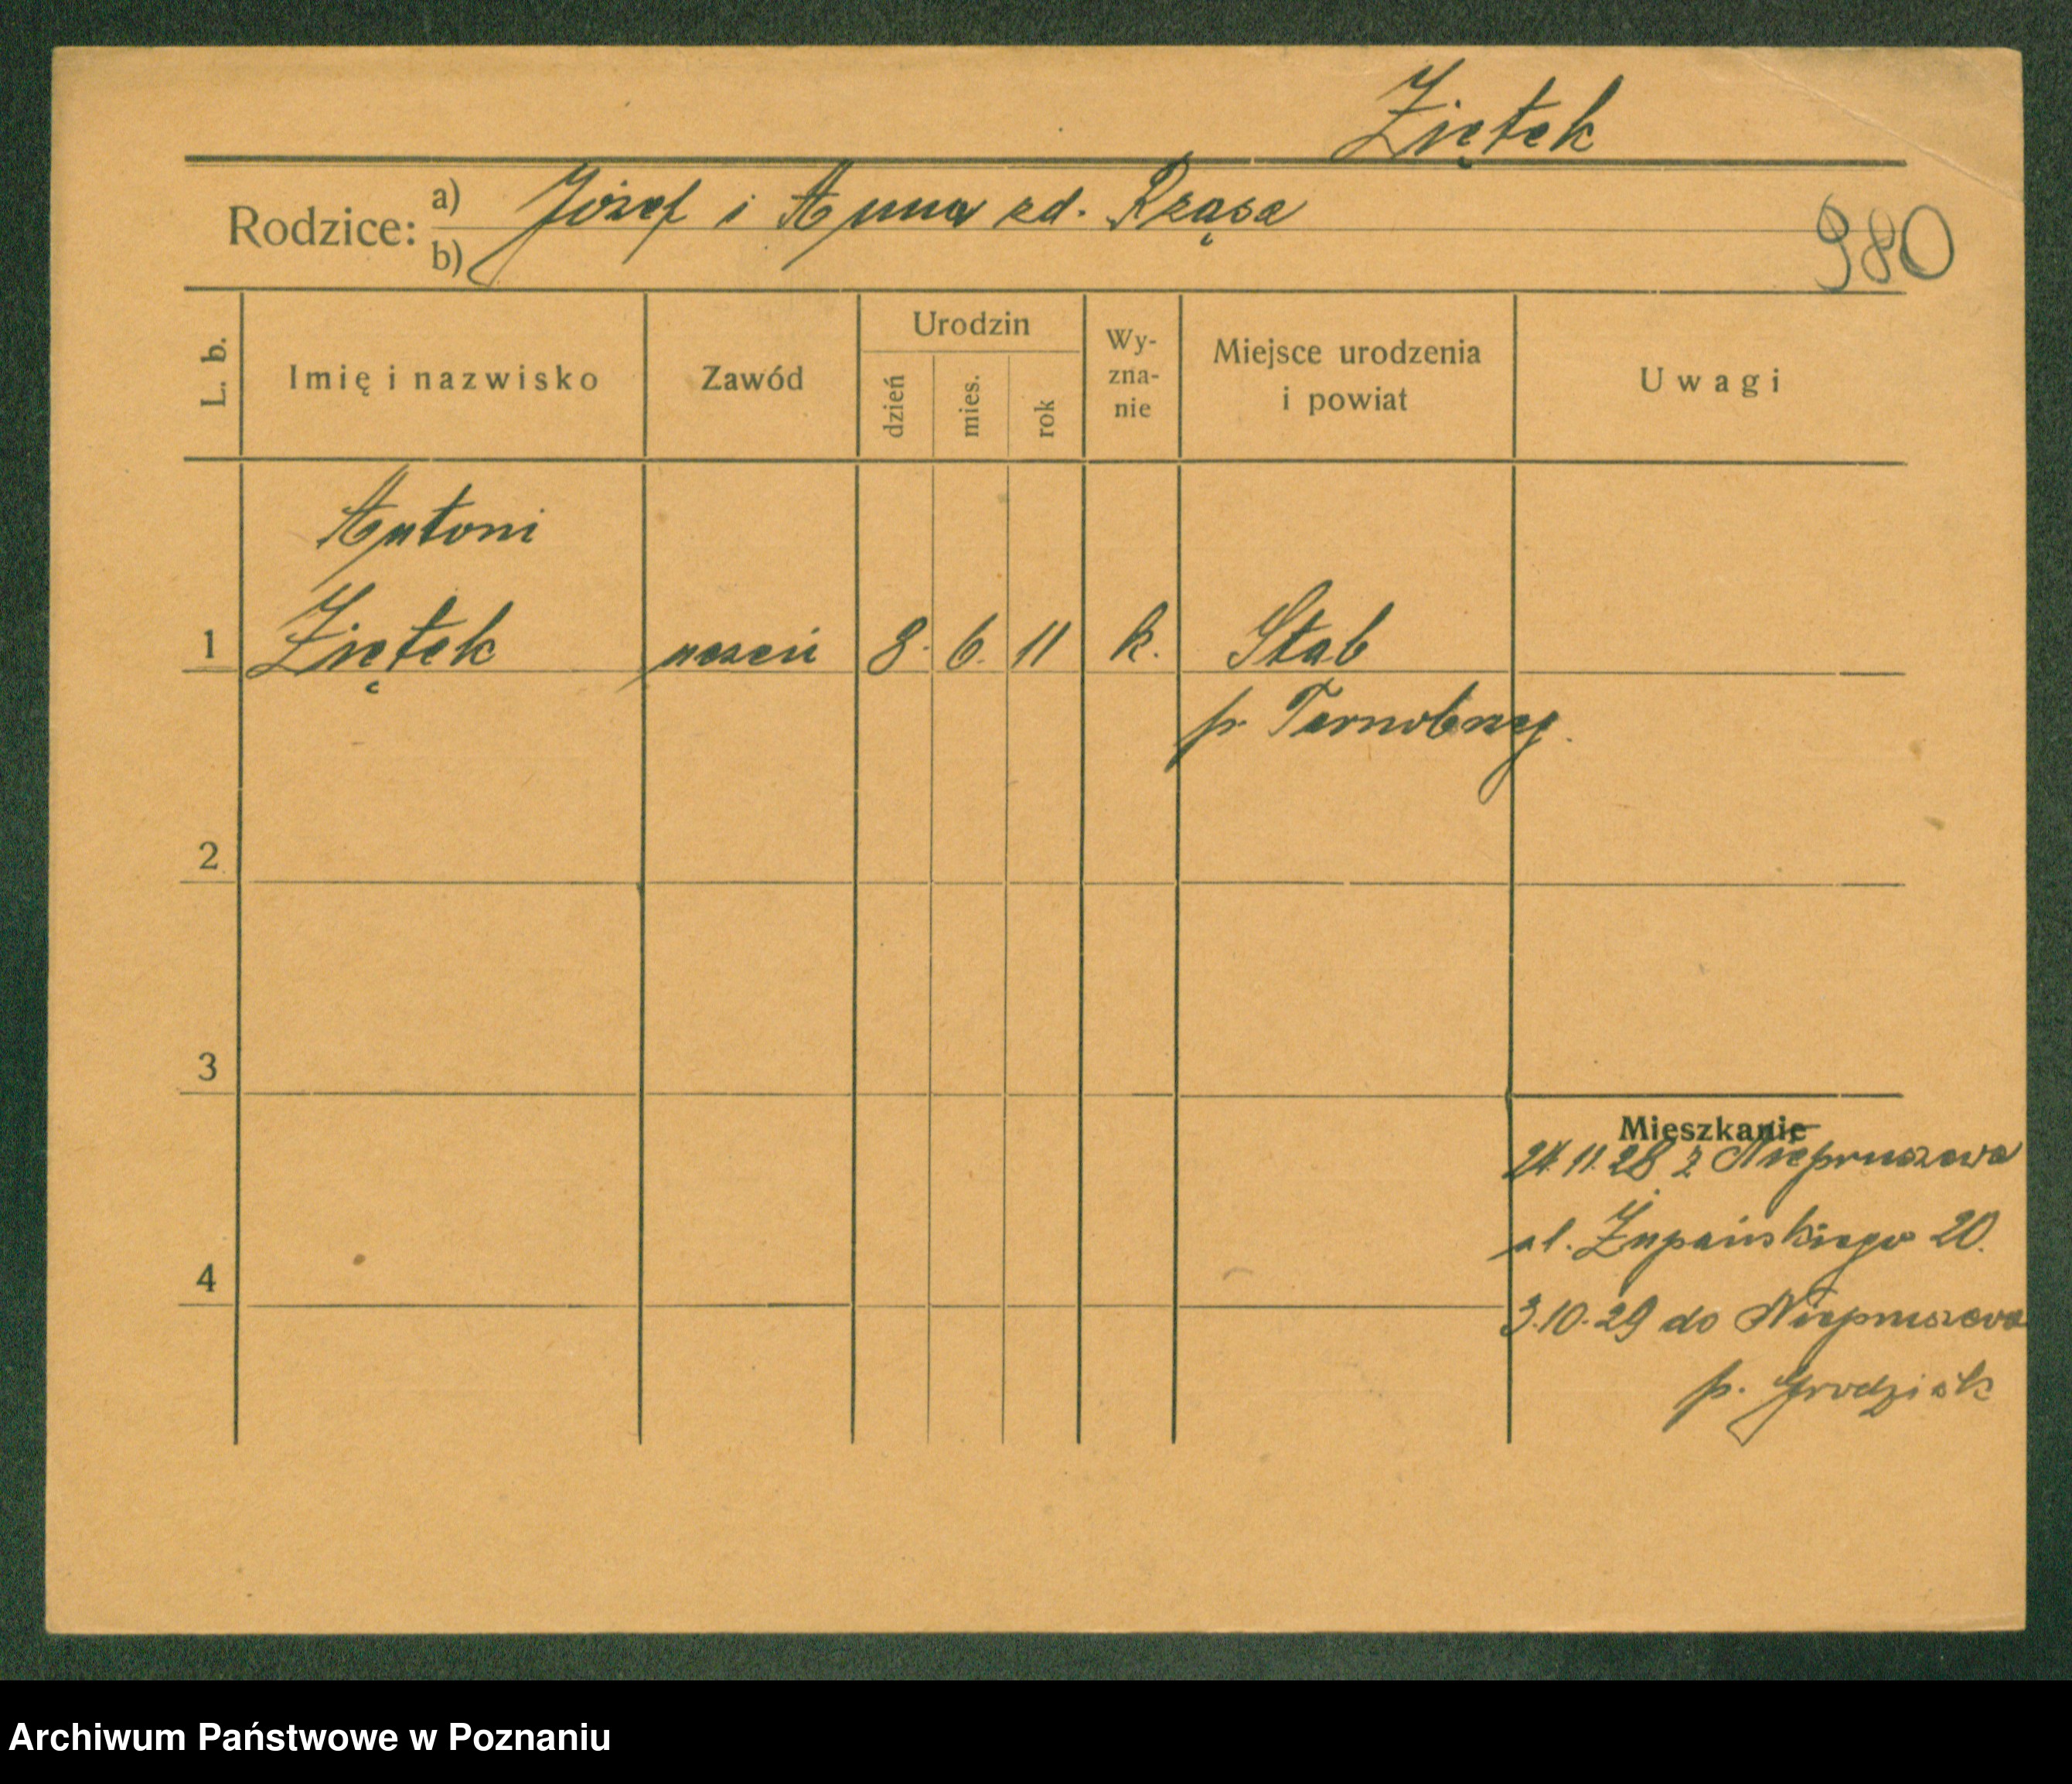 Ziętek
Rodzice: a) Józef i Anna zd. Rząsa
b)
980
L. b.
Imię i nazwisko
Zawód
Urodzin
dzień
mies.
rok
Wy-
zna-
nie
Miejsce urodzenia
i powiat
Uwagi
Antoni
1 Ziętek uczeń 8. 6. 11 k. Stab
p. Tarnobrzeg.
2
3
4
Mieszkanie
24.11.28 z Niepruszewa
ul. Żupańskiego 20.
3.10.29 do Niepruszewa
p. Grodzisk
Archiwum Państwowe w Poznaniu